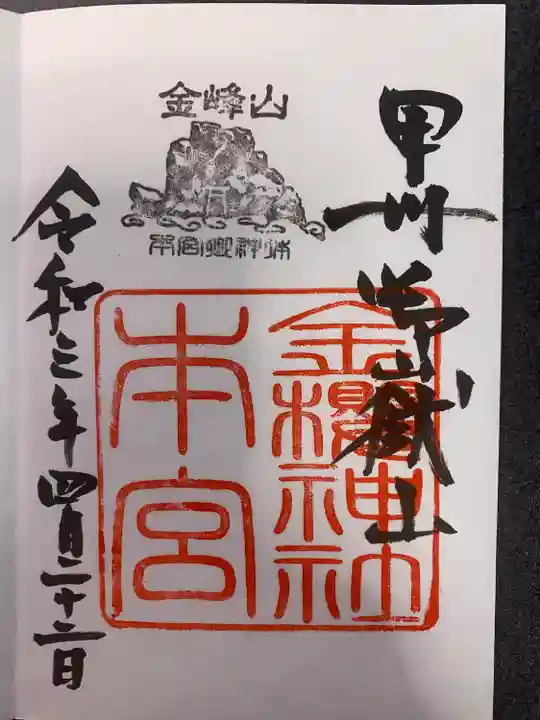 甲州御嶽山
金峰山
本宮御神体
金櫻神社
本宮
令和三年四月二十二日